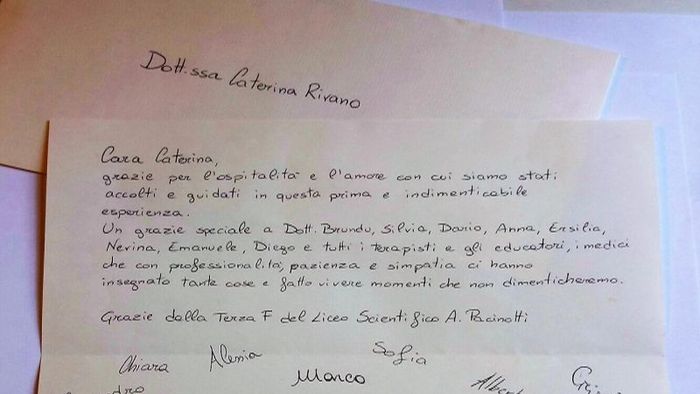 Dott.ssa Caterina Rivano
Cara Caterina,
grazie per l'ospitalità e l'amore con cui siamo stati
accolti e guidati in questa prima e indimenticabile
esperienza.
Un grazie speciale a Dott. Brundu, Silvia, Dario, Anna, Ersilia,
Nerina, Emanuele, Diego e tutti i terapisti e gli educatori, i medici
che con professionalità, pazienza e simpatia ci hanno
insegnato tante cose e fatto vivere momenti che non dimenticheremo.
Grazie dalla Terza F del Liceo Scientifico A. Pacinotti
Chiara Alessia Sofia
Marco